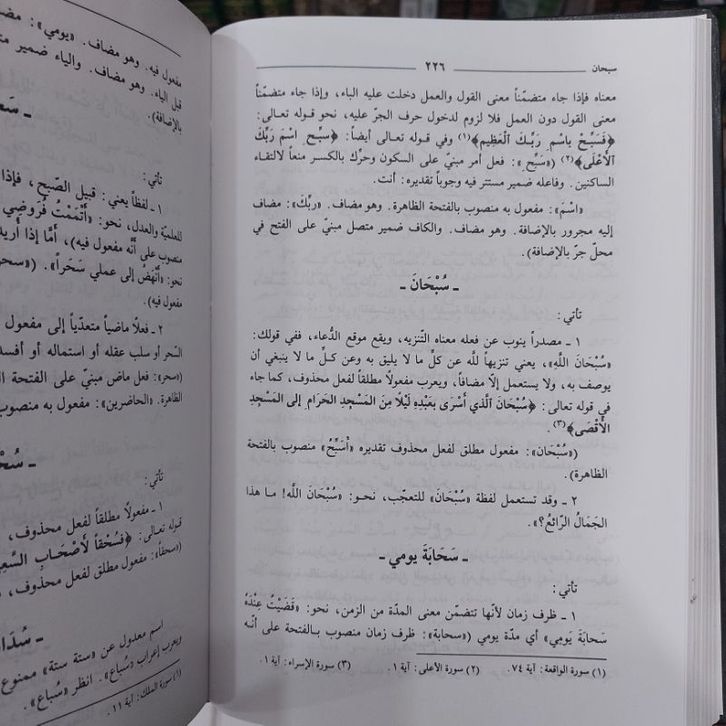 سبحان
٢٢٦
معناه فإذا جاء متضمّناً معنى القول والعمل دخلت عليه الباء، وإذا جاء متضمّناً
معنى القول دون العمل فلا لزوم لدخول حرف الجرّ عليه، نحو قوله تعالى:
﴿فَسَبِّحْ بِاسْمِ رَبِّكَ الْعَظِيمِ﴾(١) وفي قوله تعالى أيضاً: ﴿سَبِّحِ اسْمَ رَبِّكَ
الْأَعْلَى﴾(٢) («سَبِّحِ»: فعل أمر مبنيّ على السكون وحرِّك بالكسر منعاً لالتقاء
الساكنين. وفاعله ضمير مستتر فيه وجوباً تقديره: أنت.
«اسْمَ»: مفعول به منصوب بالفتحة الظاهرة. وهو مضاف. «ربِّكَ»: مضاف
إليه مجرور بالإضافة. وهو مضاف. والكاف ضمير متصل مبنيّ على الفتح في
محلّ جرّ بالإضافة).
ـ سُبْحَانَ ـ
تأتي:
١ ـ مصدراً ينوب عن فعله معناه التّنزيه، ويقع موقع الدُّعاء، ففي قولك:
«سُبْحَانَ اللَّهِ»، يعني تنزيهاً للَّه عن كلِّ ما لا يليق به وعن كلِّ ما لا ينبغي أن
يوصف به، ولا يستعمل إلَّا مضافاً، ويعرب مفعولاً مطلقاً لفعل محذوف، كما جاء
في قوله تعالى: ﴿سُبْحَانَ الَّذي أَسْرَى بِعَبْدِهِ لَيْلًا مِنَ المَسْجِدِ الحَرَامِ إلى المَسْجِدِ
الأَقْصَى﴾(٣).
(«سُبْحَان»: مفعول مطلق لفعل محذوف تقديره «أُسَبِّحُ» منصوب بالفتحة
الظاهرة).
٢ ـ وقد تستعمل لفظة «سُبْحَان» للتعجّب، نحو: «سُبْحَانَ اللَّه! ما هذا
الجَمَالُ الرّائعُ؟».
ـ سَحَابَةَ يومي ـ
تأتي:
١ ـ ظرف زمان لأنّها تتضمّن معنى المدّة من الزمن، نحو: «قَضَيْتُ عِنْدَهُ
سَحَابَةَ يَوْمِي» أي مدّة يومي («سحابة»: ظرف زمان منصوب بالفتحة على أنّه
(١) سورة الواقعة: آية ٧٤.
(٢) سورة الأعلى: آية ١.
(٣) سورة الإسراء: آية ١.
مفعول فيه. وهو مضاف. «يومي»:
قبل الياء. وهو مضاف. والياء ضمير
بالإضافة).
تأتي:
١ ـ لفظاً يعني: قبيل الصّبح، فإذا
للعلميّة والعدل، نحو: «أَتْمَمْتُ فُرُوضِي
منصوب على أنَّه مفعول فيه)، أمَّا إذا
نحو: «أَنْهَضُ إلى عملي سَحَراً».
مفعول فيه).
٢ ـ فعلاً ماضياً متعدّياً إلى مفعول
السِّحر أو سلب عقله أو استماله أو
(«سحر»: فعل ماض مبنيّ على الفتحة
الظاهرة. «الحاضرين»: مفعول به
تأتي:
١ ـ مفعولاً مطلقاً لفعل محذوف،
قوله تعالى: ﴿فَسُحْقاً لأَصْحَابِ
«سحقاً»: مفعول مطلق لفعل محذوف،
اسم معدول عن «ستة ستة» ممنوع
ويعرب إعراب «سُباع». انظر «سُباع».
(١) سورة الملك: آية ١١.